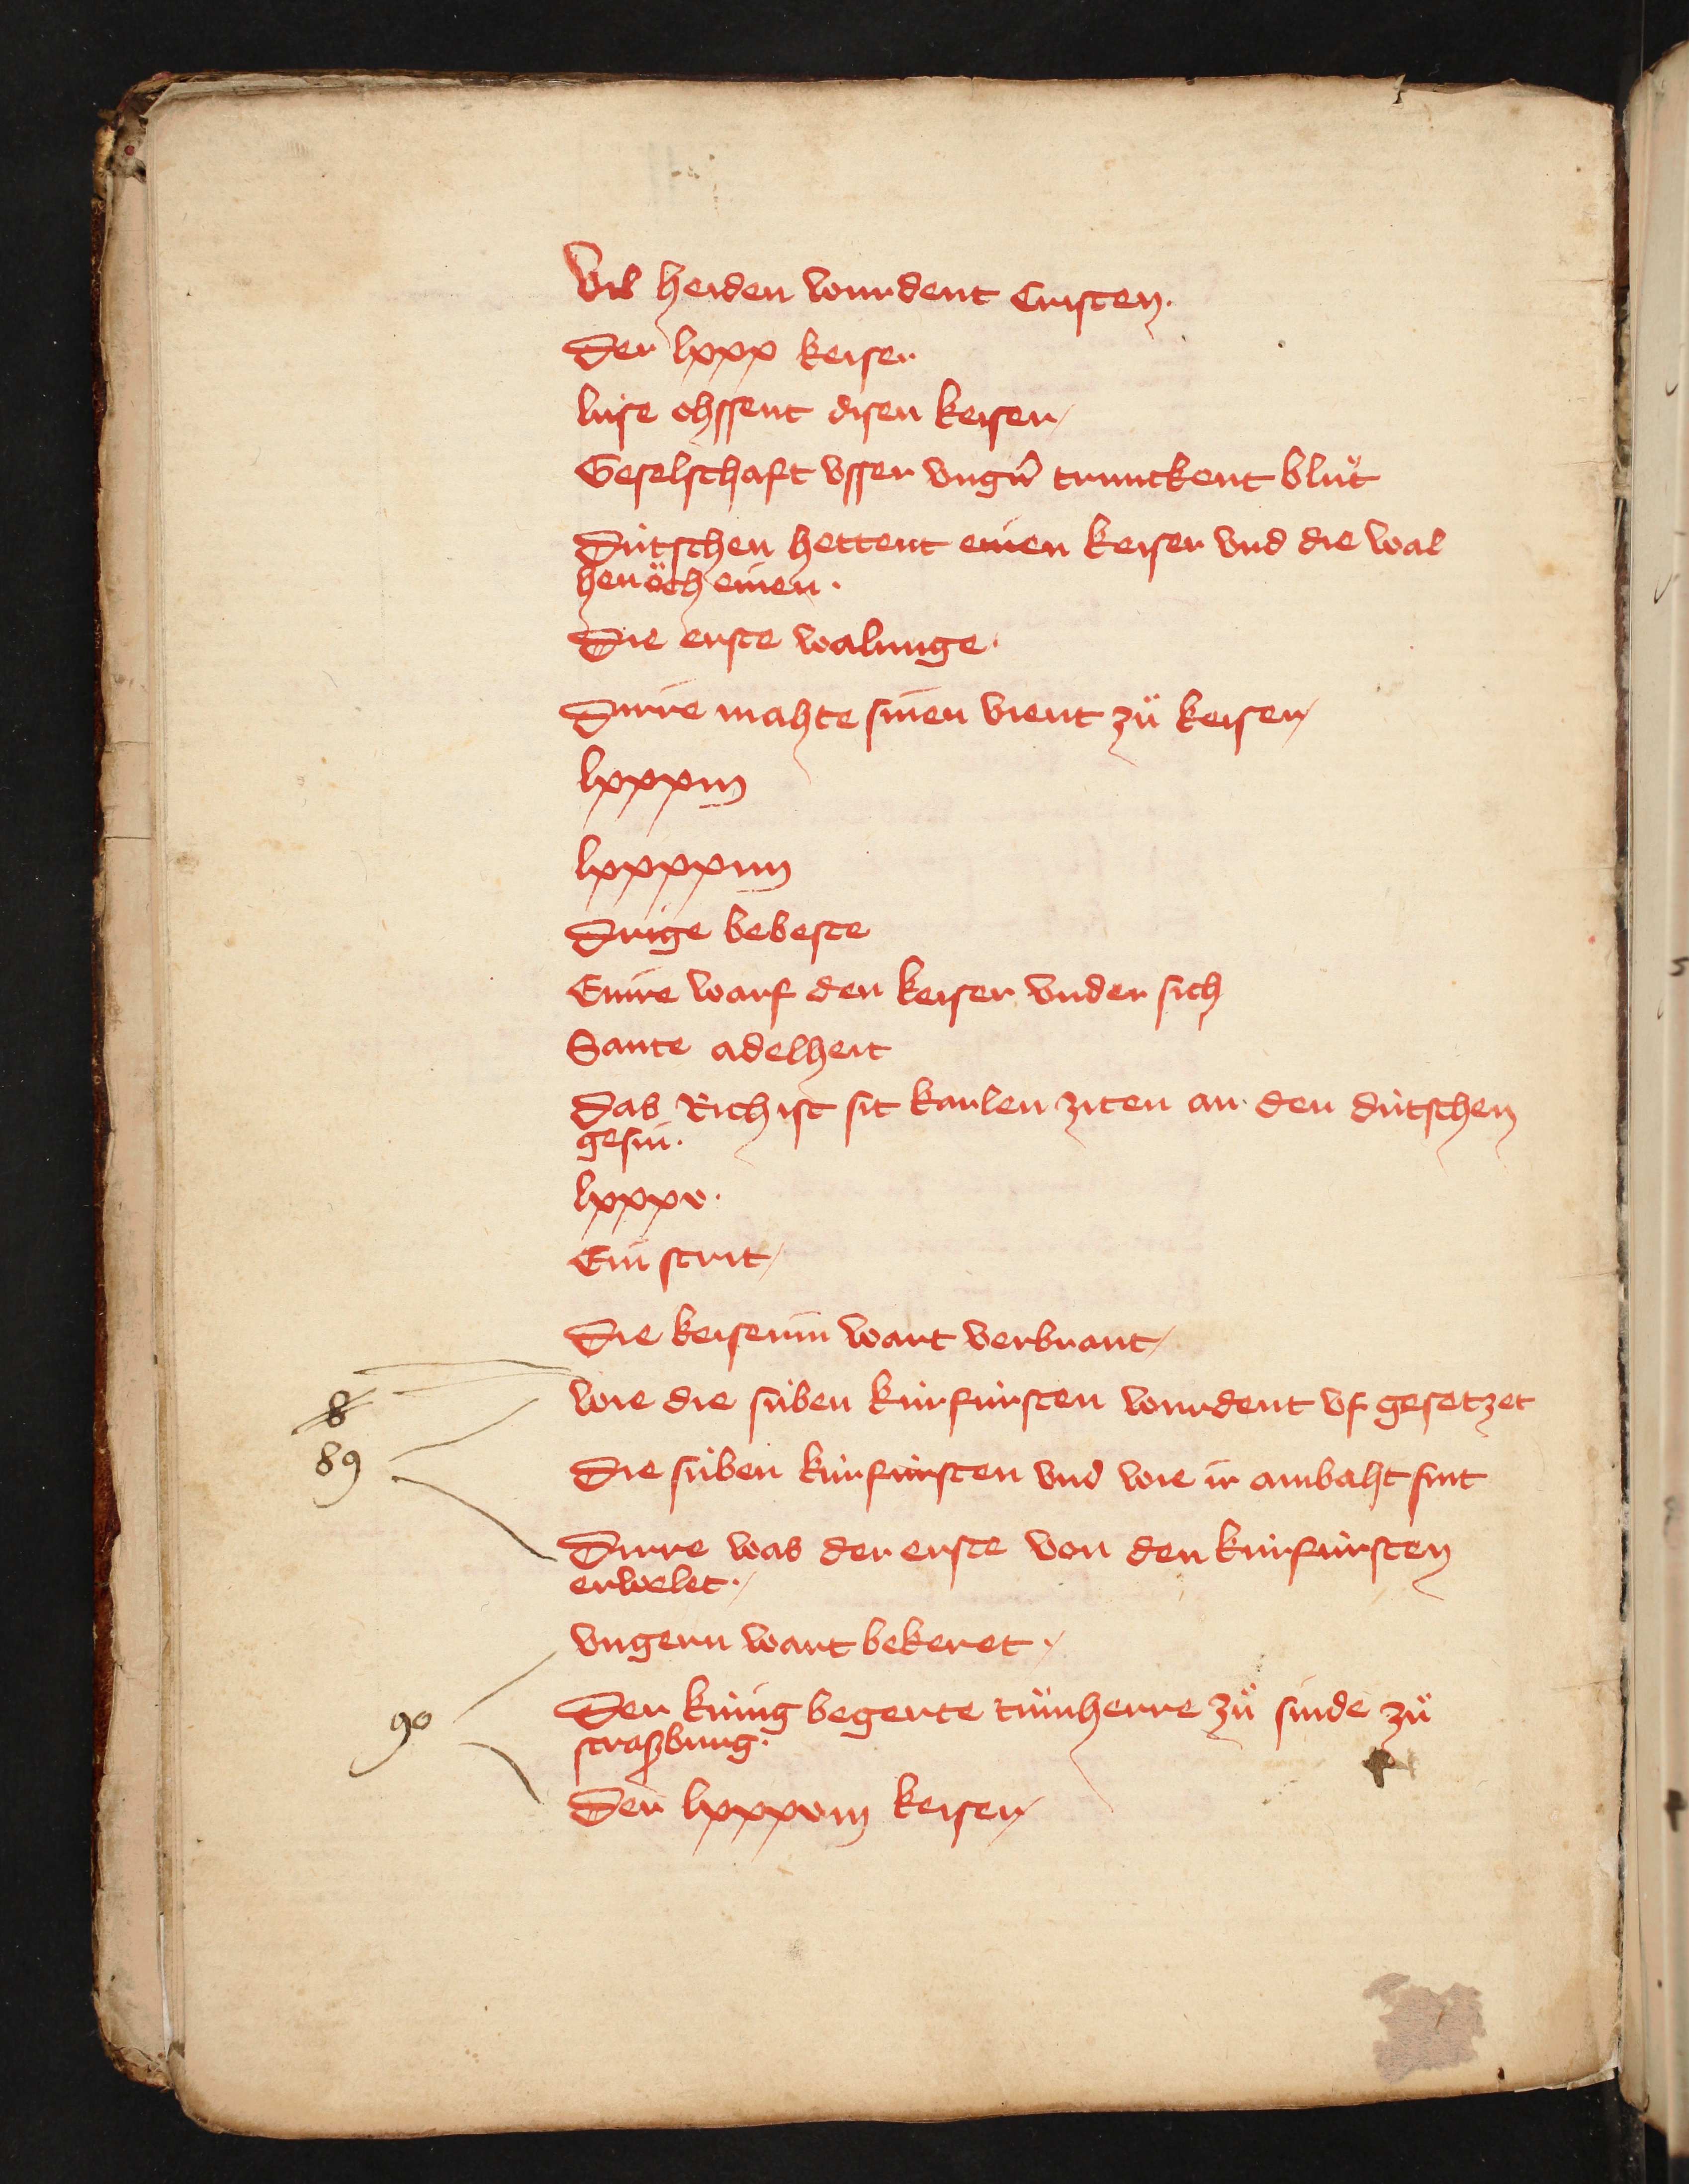 Vil heiden wurdent Cristen.
Der lxxx keiser
lúse ohssent disen keiser
Geselschaft vsser vngern̄ trunckent blůt
Dútschen hettent einen keiser vnd die wal
hen öch einen.
Die erste walunge.
Dirre mahte sinen vient zů keiser
lxxxiij
lxxxxiiij
Drige bebeste
Einre warf den keiser vnder sich
Sante adelheit
Das Rich ist sit karlen ziten an den dútschen
gesin.
lxxxv.
Ein strit
Die keiserin wart verbrant
wie die súben kúrfúrsten wurdent vf gesetzet
8
89
Die súben kúrfúrsten vnd wie ir ambaht sint
Dirre was der erste von den kúrfúrsten
erwelet.
vngern wart bekeret.
90
Der kúnig begerte tůmherre zů sinde zů
straszburg.
Der lxxxviij keiser